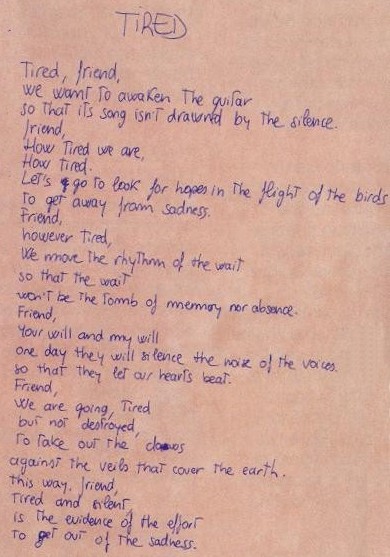 TIRED
Tired, friend,
we want to awaken the guitar
so that its song isn't drawned by the silence.
friend,
How tired we are,
How tired.
Let's go to look for hopes in the flight of the birds
to get away from sadness.
Friend,
however tired,
We move the rhythm of the wait
so that the wait
won't be the tomb of memory nor absence.
Friend,
Your will and my will
one day they will silence the noise of the voices
so that they let our hearts beat.
Friend,
We are going, tired
but not destroyed,
to take out the claws
against the veils that cover the earth.
this way, friend,
tired and silent,
is the evidence of the effort
to get out of the sadness.